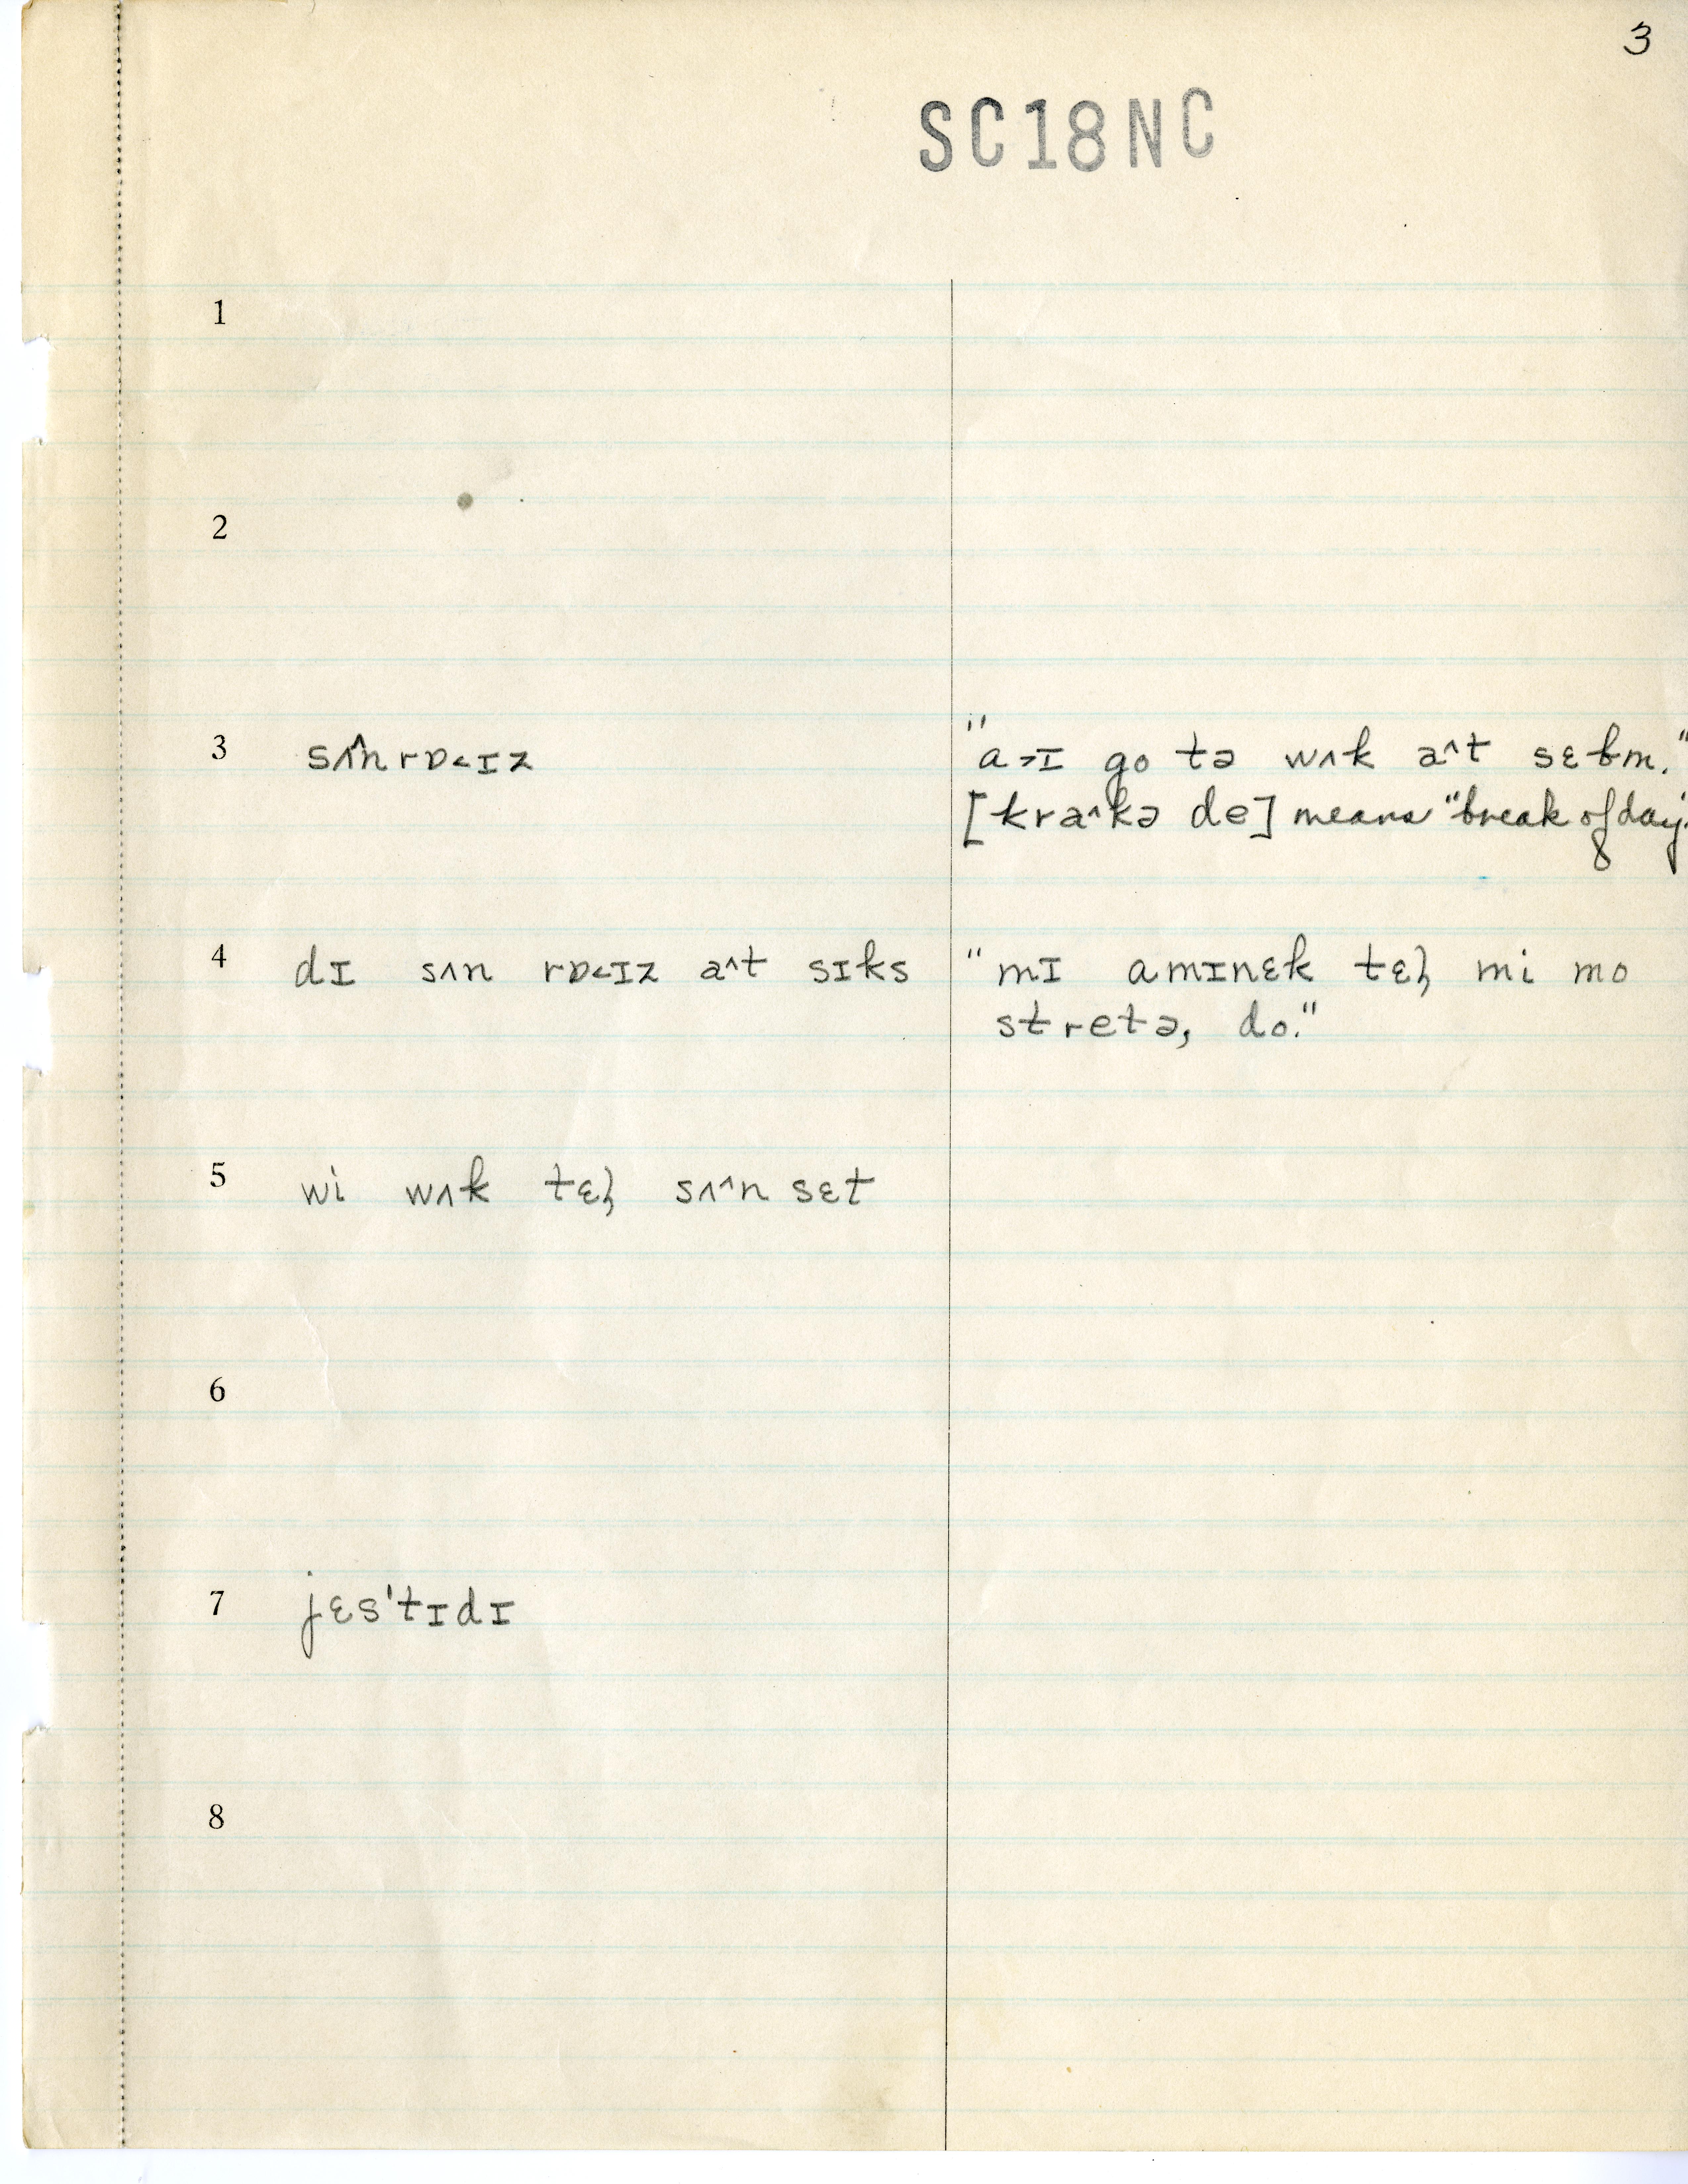 3
SC18NC
1
2
3 sʌ^nrɒ<ɪz "a>ɪ go tə wʌk a^t sɛbm."
[kra^kə de] means "break of day."
4 dɪ sʌn rɒ<ɪz a^t sɪks "mɪ amɪnɛk tɛl̩ mi mo
stretə, do."
5 wi wʌk tɛl̩ sʌ^n sɛt
6
7 jɛs'tɪdɪ
8